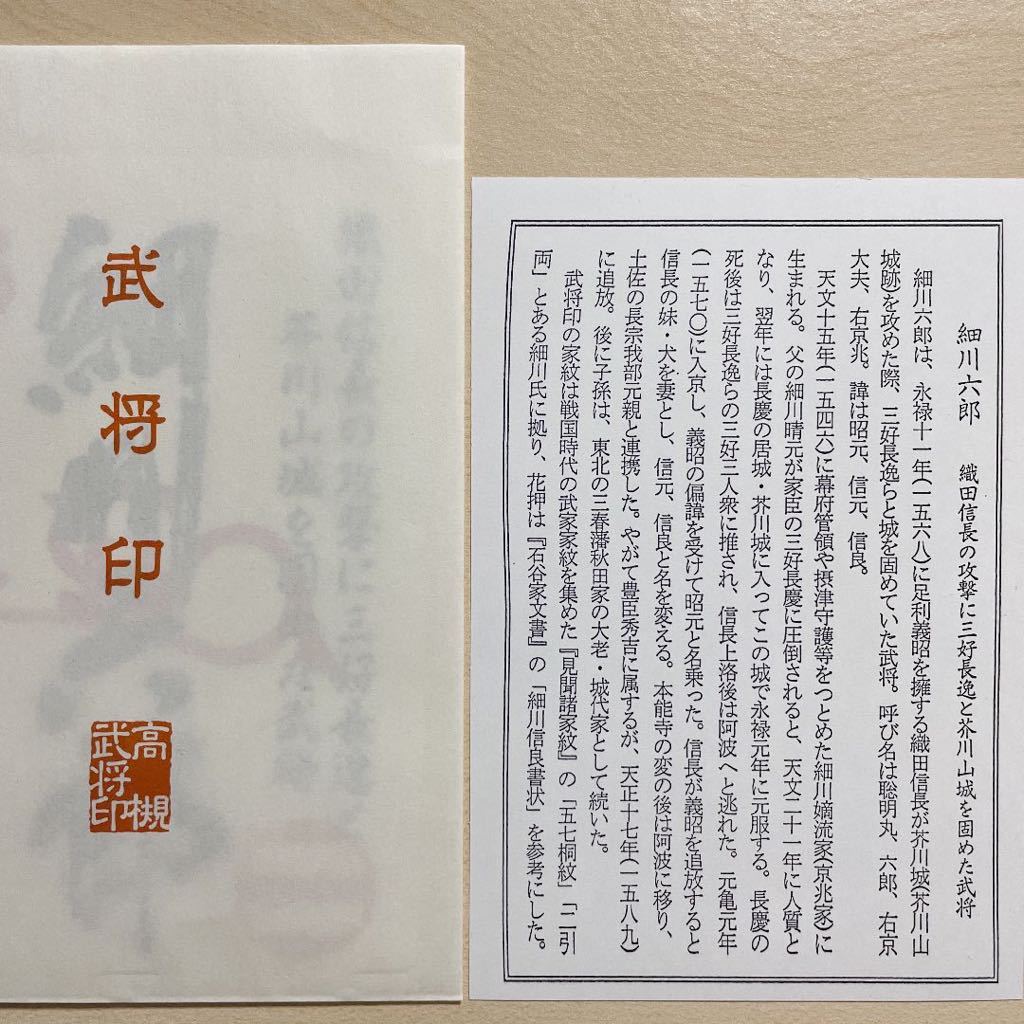 武将印
高槻
武将印
細川六郎　織田信長の攻撃に三好長逸と芥川山城を固めた武将
細川六郎は、永禄十一年(一五六八)に足利義昭を擁する織田信長が芥川城(芥川山
城跡)を攻めた際、三好長逸らと城を固めていた武将。呼び名は聡明丸、六郎、右京
大夫、右京兆。諱は昭元、信元、信良。
天文十五年(一五四六)に幕府管領や摂津守護等をつとめた細川嫡流家(京兆家)に
生まれる。父の細川晴元が家臣の三好長慶に圧倒されると、天文二十一年に人質と
なり、翌年には長慶の居城・芥川城に入ってこの城で永禄元年に元服する。長慶の
死後は三好長逸らの三好三人衆に推され、信長上洛後は阿波へと逃れた。元亀元年
(一五七〇)に入京し、義昭の偏諱を受けて昭元と名乗った。信長が義昭を追放すると
信長の妹・犬を妻とし、信元、信良と名を変える。本能寺の変の後は阿波に移り、
土佐の長宗我部元親と連携した。やがて豊臣秀吉に属するが、天正十七年(一五八九)
に追放。後に子孫は、東北の三春藩秋田家の大老・城代家として続いた。
武将印の家紋は戦国時代の武家家紋を集めた『見聞諸家紋』の「五七桐紋」「二引
両」とある細川氏に拠り、花押は『石谷家文書』の「細川信良書状」を参考にした。